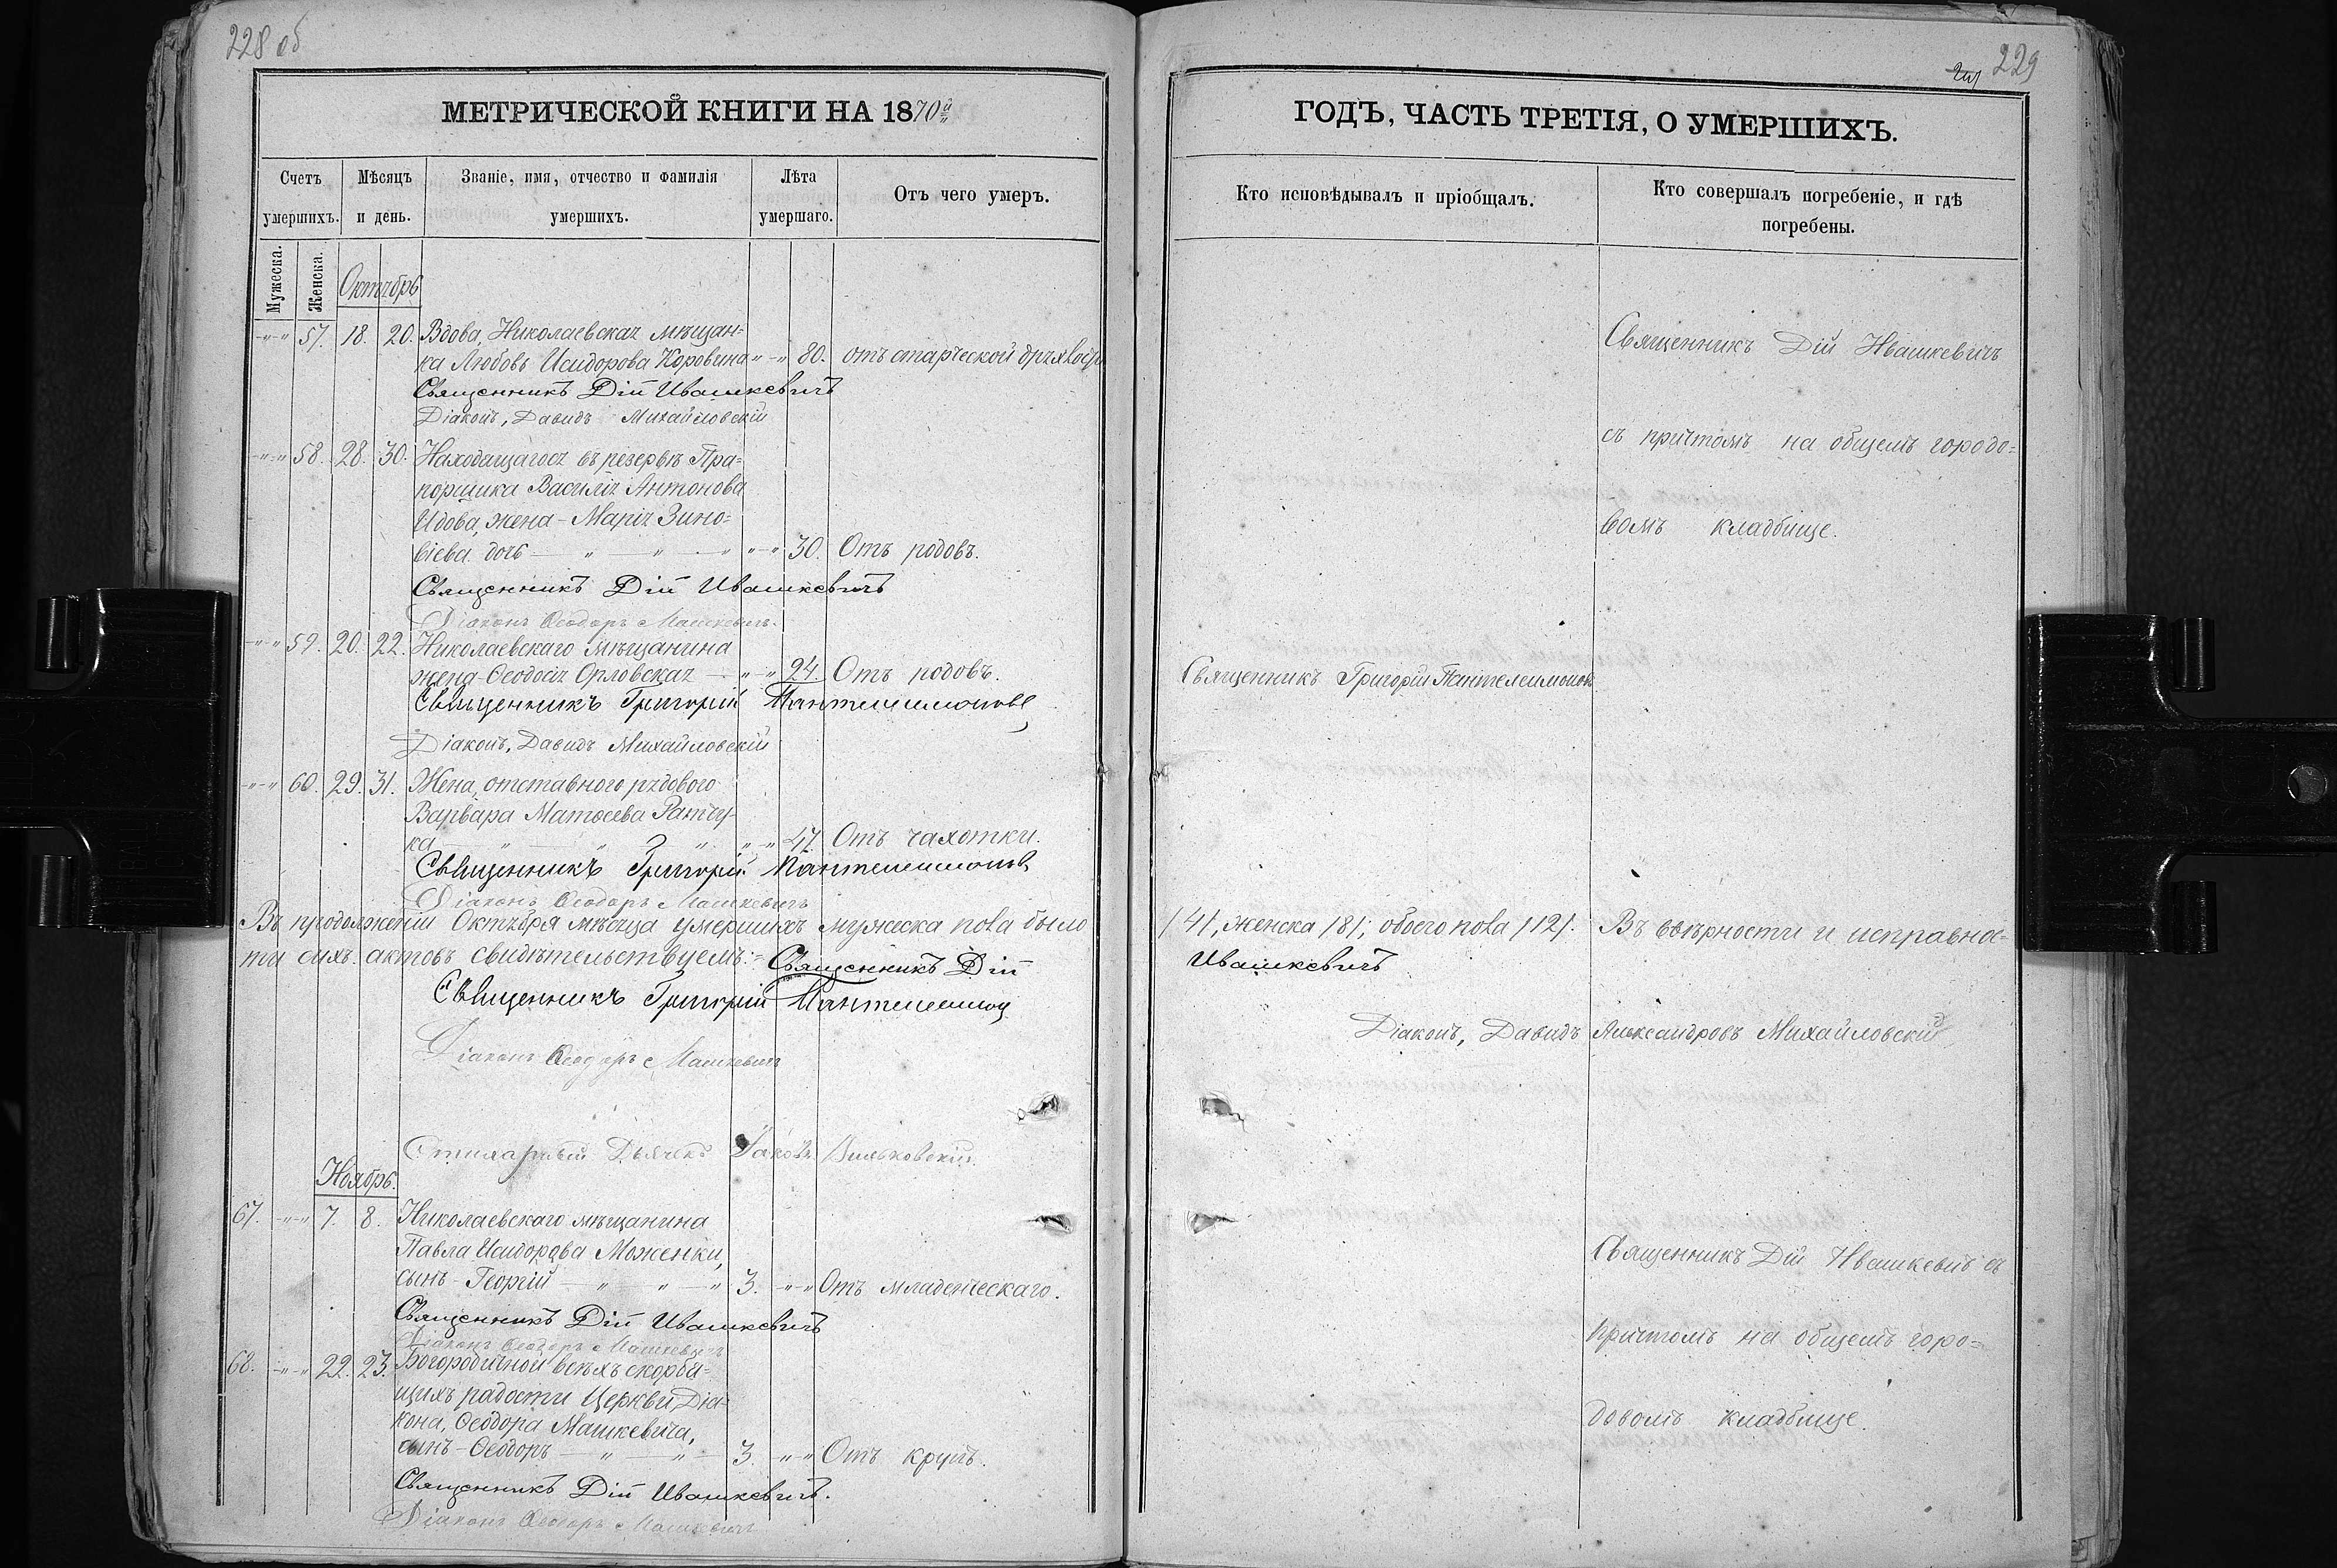 228 об
МЕТРИЧЕСКОЙ КНИГИ НА 1870й
Счетъ умершихъ.
Мѣсяцъ и день.
Званіе, имя, отчество и фамилія умершихъ.
Лѣта умершаго.
Отъ чего умеръ.
Мужеска.
Женска.
Октябрь
57. 18. 20. Вдова, Николаевская мѣщан=
ка Любовь Исидорова Коровина " " 80. отъ старческой дряхлости
Священникъ Дій Ивашкевичъ
Діаконъ, Давидъ Михайловскій
58. 28. 30. Находящагося въ резервѣ Пра=
порщика Василія Антонова
Идова, жена - Марія Зино=
віева дочь " " " " 30. Отъ родовъ.
Священникъ Дій Ивашкевичъ
Діаконъ Ѳеодоръ Машкевичъ
59. 20. 22. Николаевскаго мѣщанина
жена - Ѳеодосія Орловская " " 24. Отъ родовъ.
Священникъ Григорій Пантелеимоновъ
Діаконъ, Давидъ Михайловскій
60. 29. 31. Жена, отставного рядового
Варвара Матѳеева Ратчу-
ка " " " " 47. Отъ чахотки.
Священникъ Григорій Пантелеимоновъ
Діаконъ Ѳеодоръ Машкевичъ
Въ продолженіи Октября мѣсяца умершихъ мужеска пола было
ти сихъ актовъ свидѣтельствуемъ:= Священникъ Дій
Священникъ Григорій Пантелеимонов
Діаконъ Ѳеодоръ Машкевичъ
Стихарный Дьячекъ Іаковъ Вильковскій.
Ноябрь.
67. " " 7. 8. Николаевскаго мѣщанина
Павла Исидорова Моженки,
сынъ - Георгій " " " 3. " " Отъ младенческаго.
Священникъ Дій Ивашкевичъ
Діаконъ Ѳеодоръ Машкевичъ
68. " " 22. 23. Богородичной всѣхъ скорбя=
щихъ радости Церкви, Діа-
кона, Ѳеодора Машкевича,
сынъ - Ѳеодоръ " " 3. " " Отъ крупъ.
Священникъ Дій Ивашкевичъ.
Діаконъ Ѳеодоръ Машкевичъ
229
ГОДЪ, ЧАСТЬ ТРЕТІЯ, О УМЕРШИХЪ.
Кто исповѣдывалъ и пріобщалъ.
Кто совершалъ погребеніе, и гдѣ погребены.
Священникъ Дій Ивашкевичъ
съ причтомъ на общемъ городо=
вомъ кладбище.
Священникъ Григорій Пантелеимонов
/4/, женска /8/; обоего пола /12/. Въ вѣрности и исправно=
Ивашкевичъ
Діаконъ, Давидъ Александровъ Михайловскій
Священникъ Дій Ивашкевичъ съ
причтомъ на общемъ горо=
довомъ кладбище.